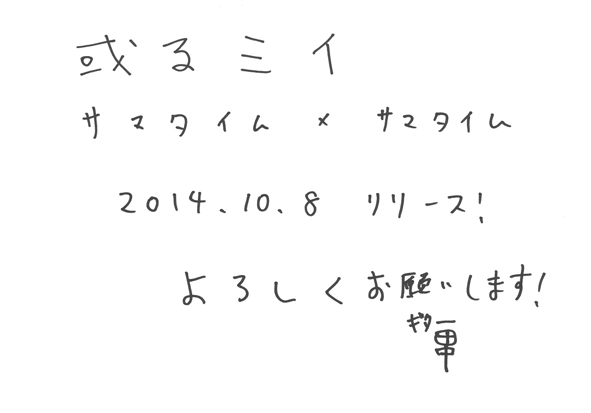 或るミイ
サマタイム × サマタイム
2014.10.8 リリース!
よろしくお願いします!
ギター